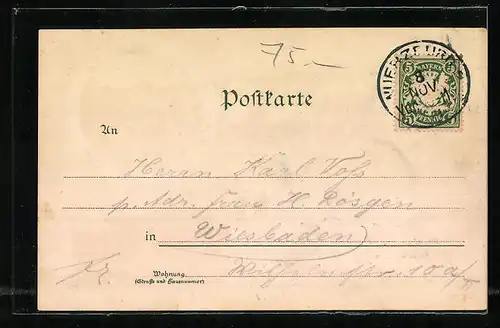 75.–
WUERZBURG
8
NOV.
BAYERN
5 5
5 PFENNIG
Postkarte
An
Herrn Karl Voss
p. Adr. Frau H. Rösgen
in Wiesbaden
Fr. Wohnung Wilhelmstr. 10 a/
(Straße und Hausnummer)